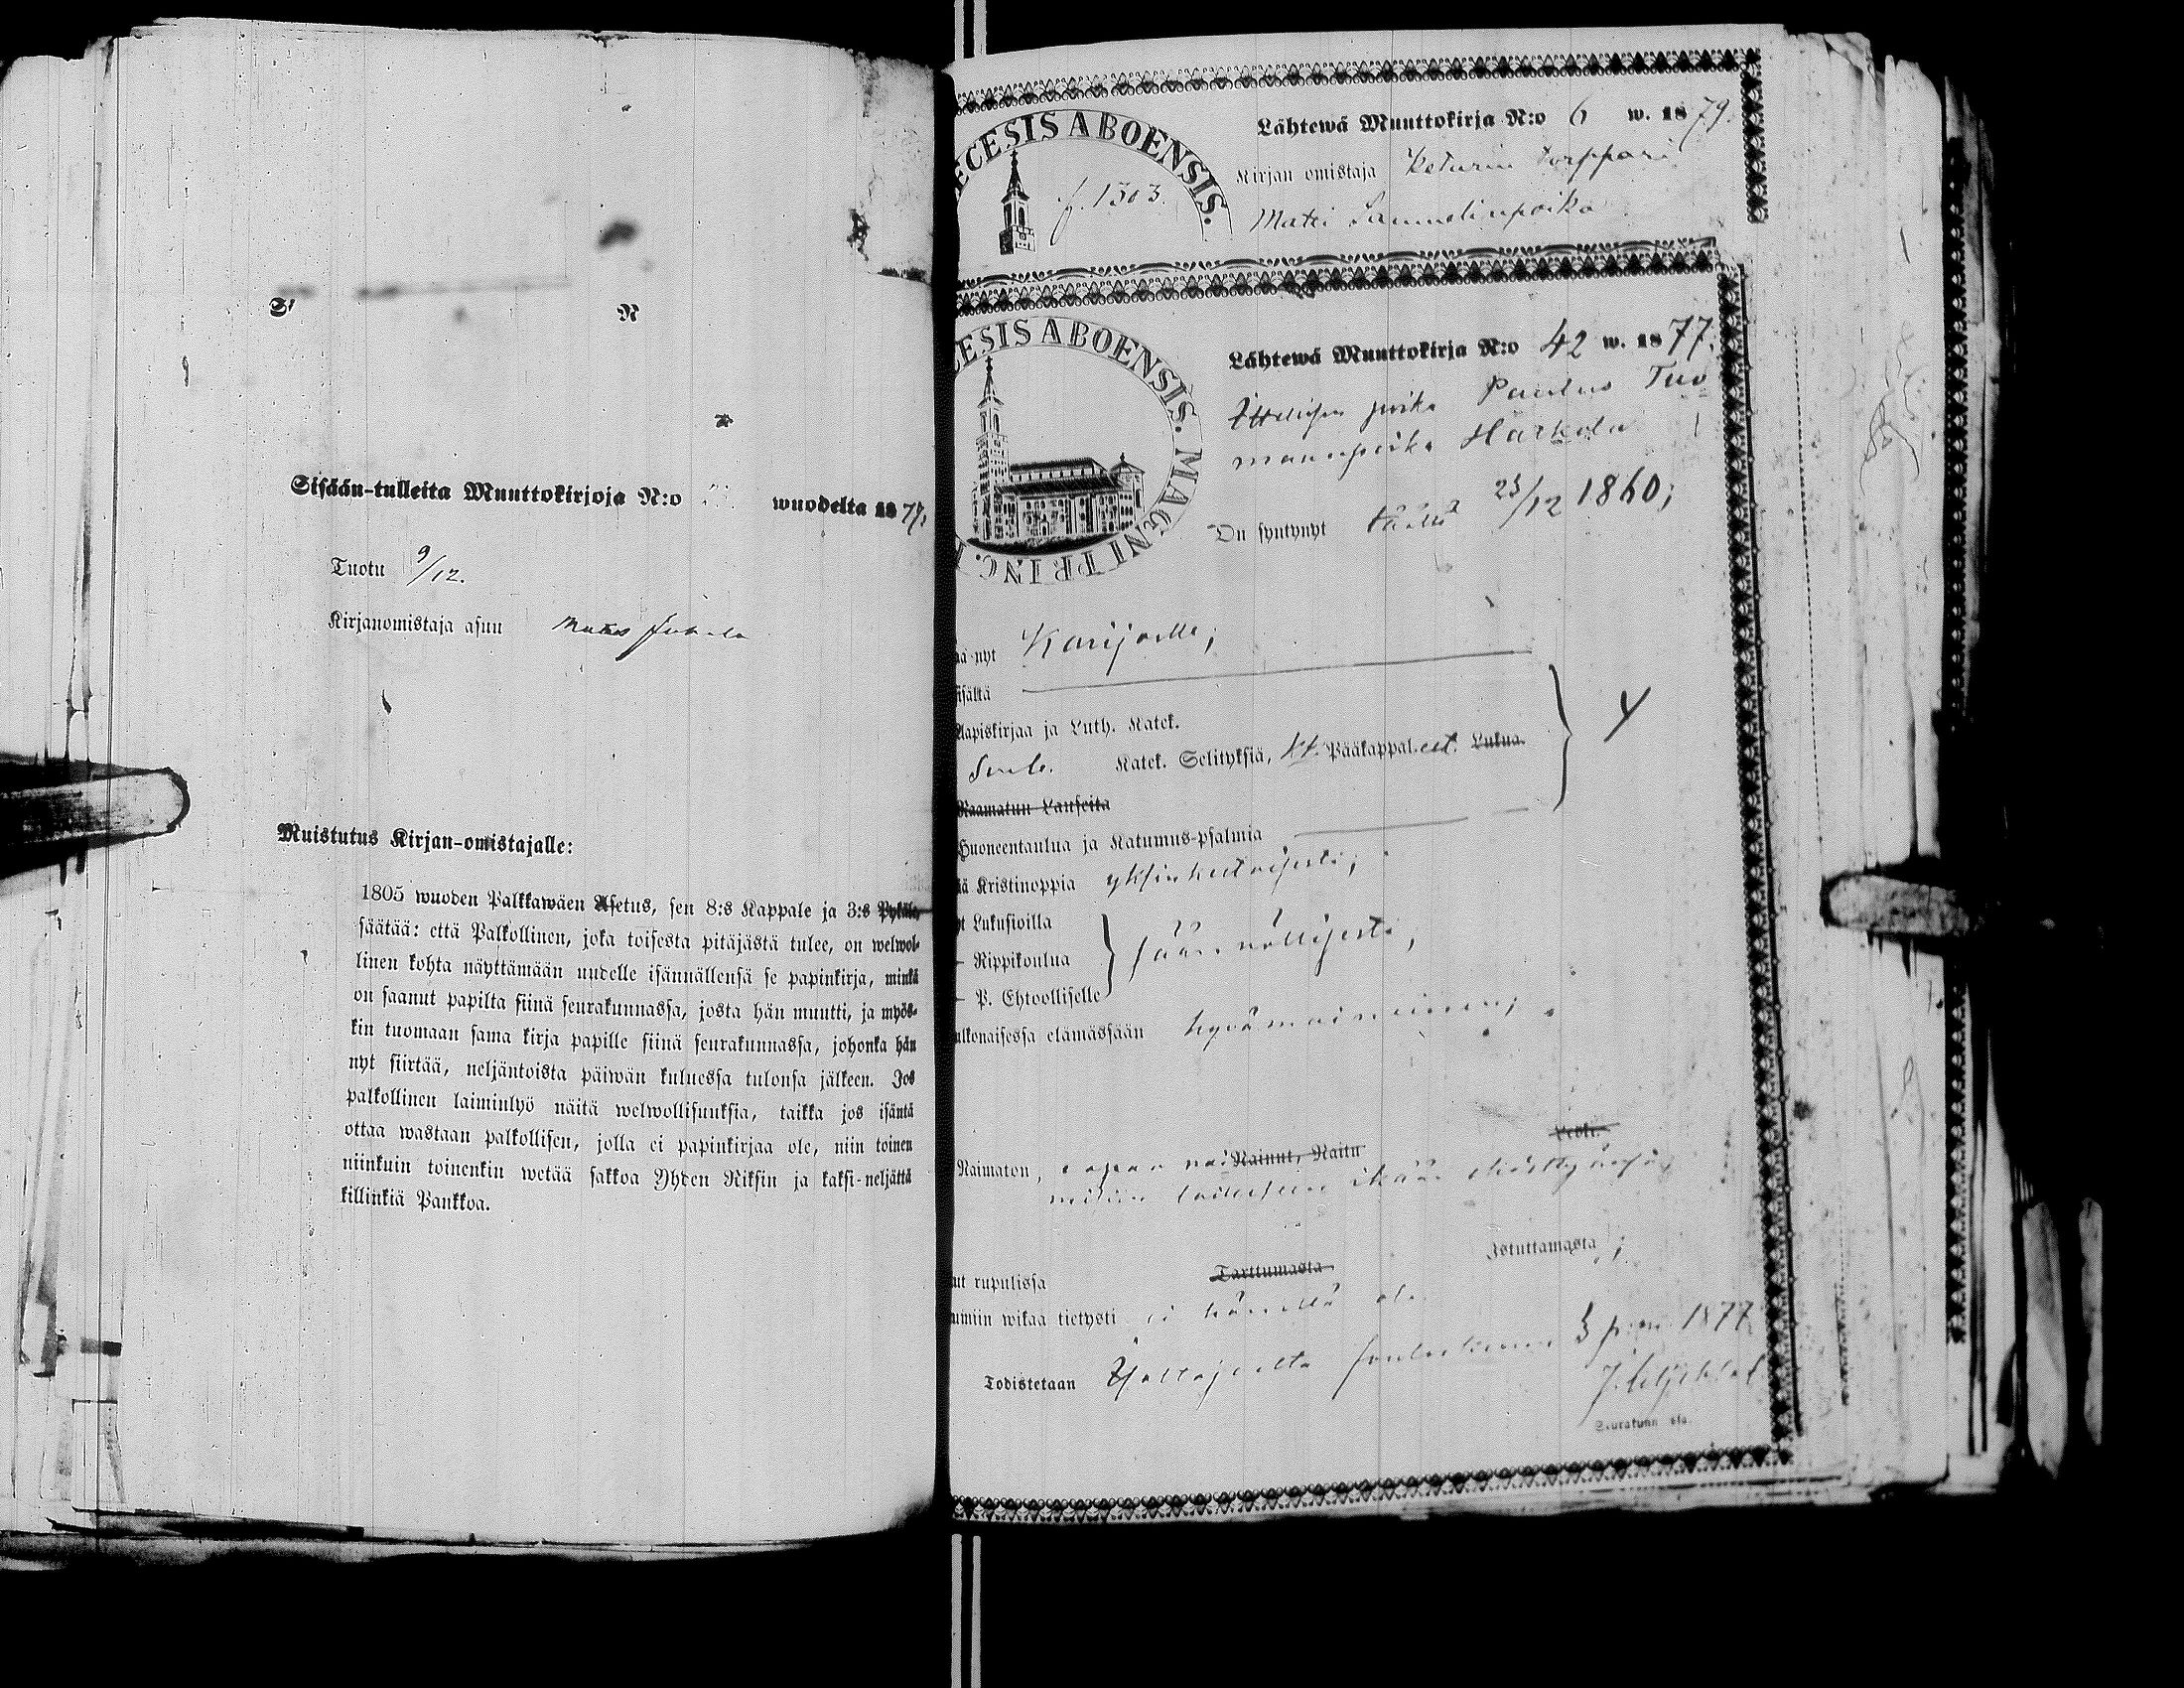 S N
Sisään-tulleita Muuttokirjoja N:o wuodelta 1877.
Tuotu 9/12.
Kirjanomistaja asuu
Muistutus Kirjan-omistajalle:
1805 wuoden Palkkawäen Asetus, sen 8:s Kappale ja 3:s Pykälä,
säätää: että Palkollinen, joka toisesta pitäjästä tulee, on welwol-
linen kohta näyttämään uudelle isännällensä se papinkirja, minkä
on saanut papilta siinä seurakunnassa, josta hän muutti, ja myös-
kin tuomaan sama kirja papille siinä seurakunnassa, johonka hän
nyt siirtää, neljäntoista päiwän kuluessa tulonsa jälkeen. Jos
palkollinen laiminlyö näitä welwollisuuksia, taikka jos isäntä
ottaa wastaan palkollisen, jolla ei papinkirjaa ole, niin toinen
niinkuin toinenkin wetää sakkoa Yhden Riksin ja kaksi-neljättä
killinkiä Pankkoa.
ECESIS ABOENSIS.
f. 1303.
Lähtewä Muuttokirja N:o 6 w. 1879.
Kirjan omistaja torppari
Matti Samuelinpoika
ECESIS ABOENSIS. MAGNI PRINC.
Lähtewä Muuttokirja N:o 42 w. 1877.
Ittellisen poika Paulus Tuo
maanpoika Härkola
On syntynyt täällä 23/12 1860;
ää nyt Karijoelle;
isältä
Aapiskirjaa ja Luth. Katek.
Katek. Selityksiä, kt. Pääkappal.et. Lukua
Raamatun Lauseita
4
Huoneentaulua ja Katumus-psalmia
ä Kristinoppia yksinkertaisesti;
t Lukusioilla
- Rippikoulua
- P. Ehtoolliselle
säännöllisesti,
ulkonaisessa elämässään hywämaineinen;
Naimaton, Nainut, Naitu Leski.
ut rupulissa Tarttumasta Istuttamasta;
umiin wikaa tietysti ei hänellä ole.
Todistetaan 1877
Seurakunn